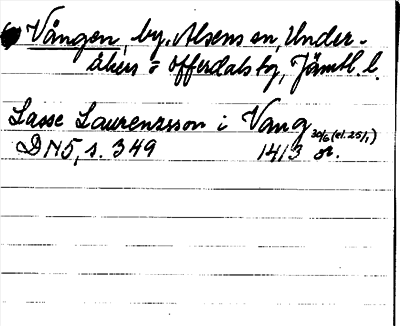 Vången, by, Alsens sn, Under-
åkers o Offerdals tg, Jämtl. l.
Lasse Laurenzsson i Vang 30/6 (el. 25/1)
DN 5, s. 349 1413 or.